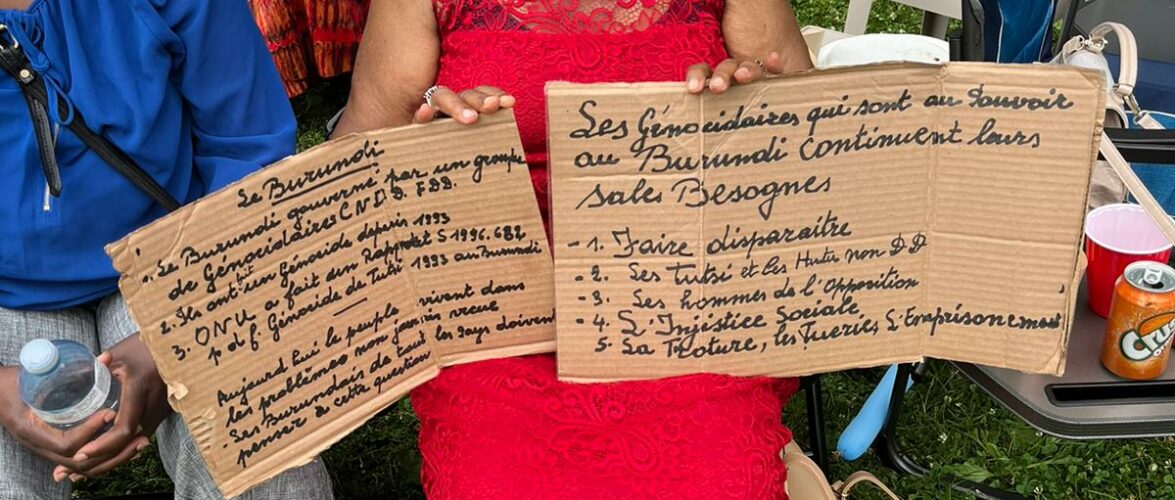 Le Burundi
1. Le Burundi gouverné par un groupe
de Génocidaires C N D D. FDD.
2. Ils ont fait un Génocide depuis 1993
3. ONU a fait un Rapport S 1996. 682
p d f. Génocide de Tutsi 1993 au Burundi
Aujourd'hui le peuple vivent dans
les problèmes non jamais vécue
- Les Burundais de tout les pays doivent
penser à cette question
Les Génocidaires qui sont au Pouvoir
au Burundi continuent leurs
sales Besognes
- 1. Faire disparaître
- 2. Les Tutsi et les Hutu non DD
- 3. Les hommes de l'Opposition
- 4. L'Injistice Sociale
5. La Troture, les Tueries L'Emprisonement
Crush